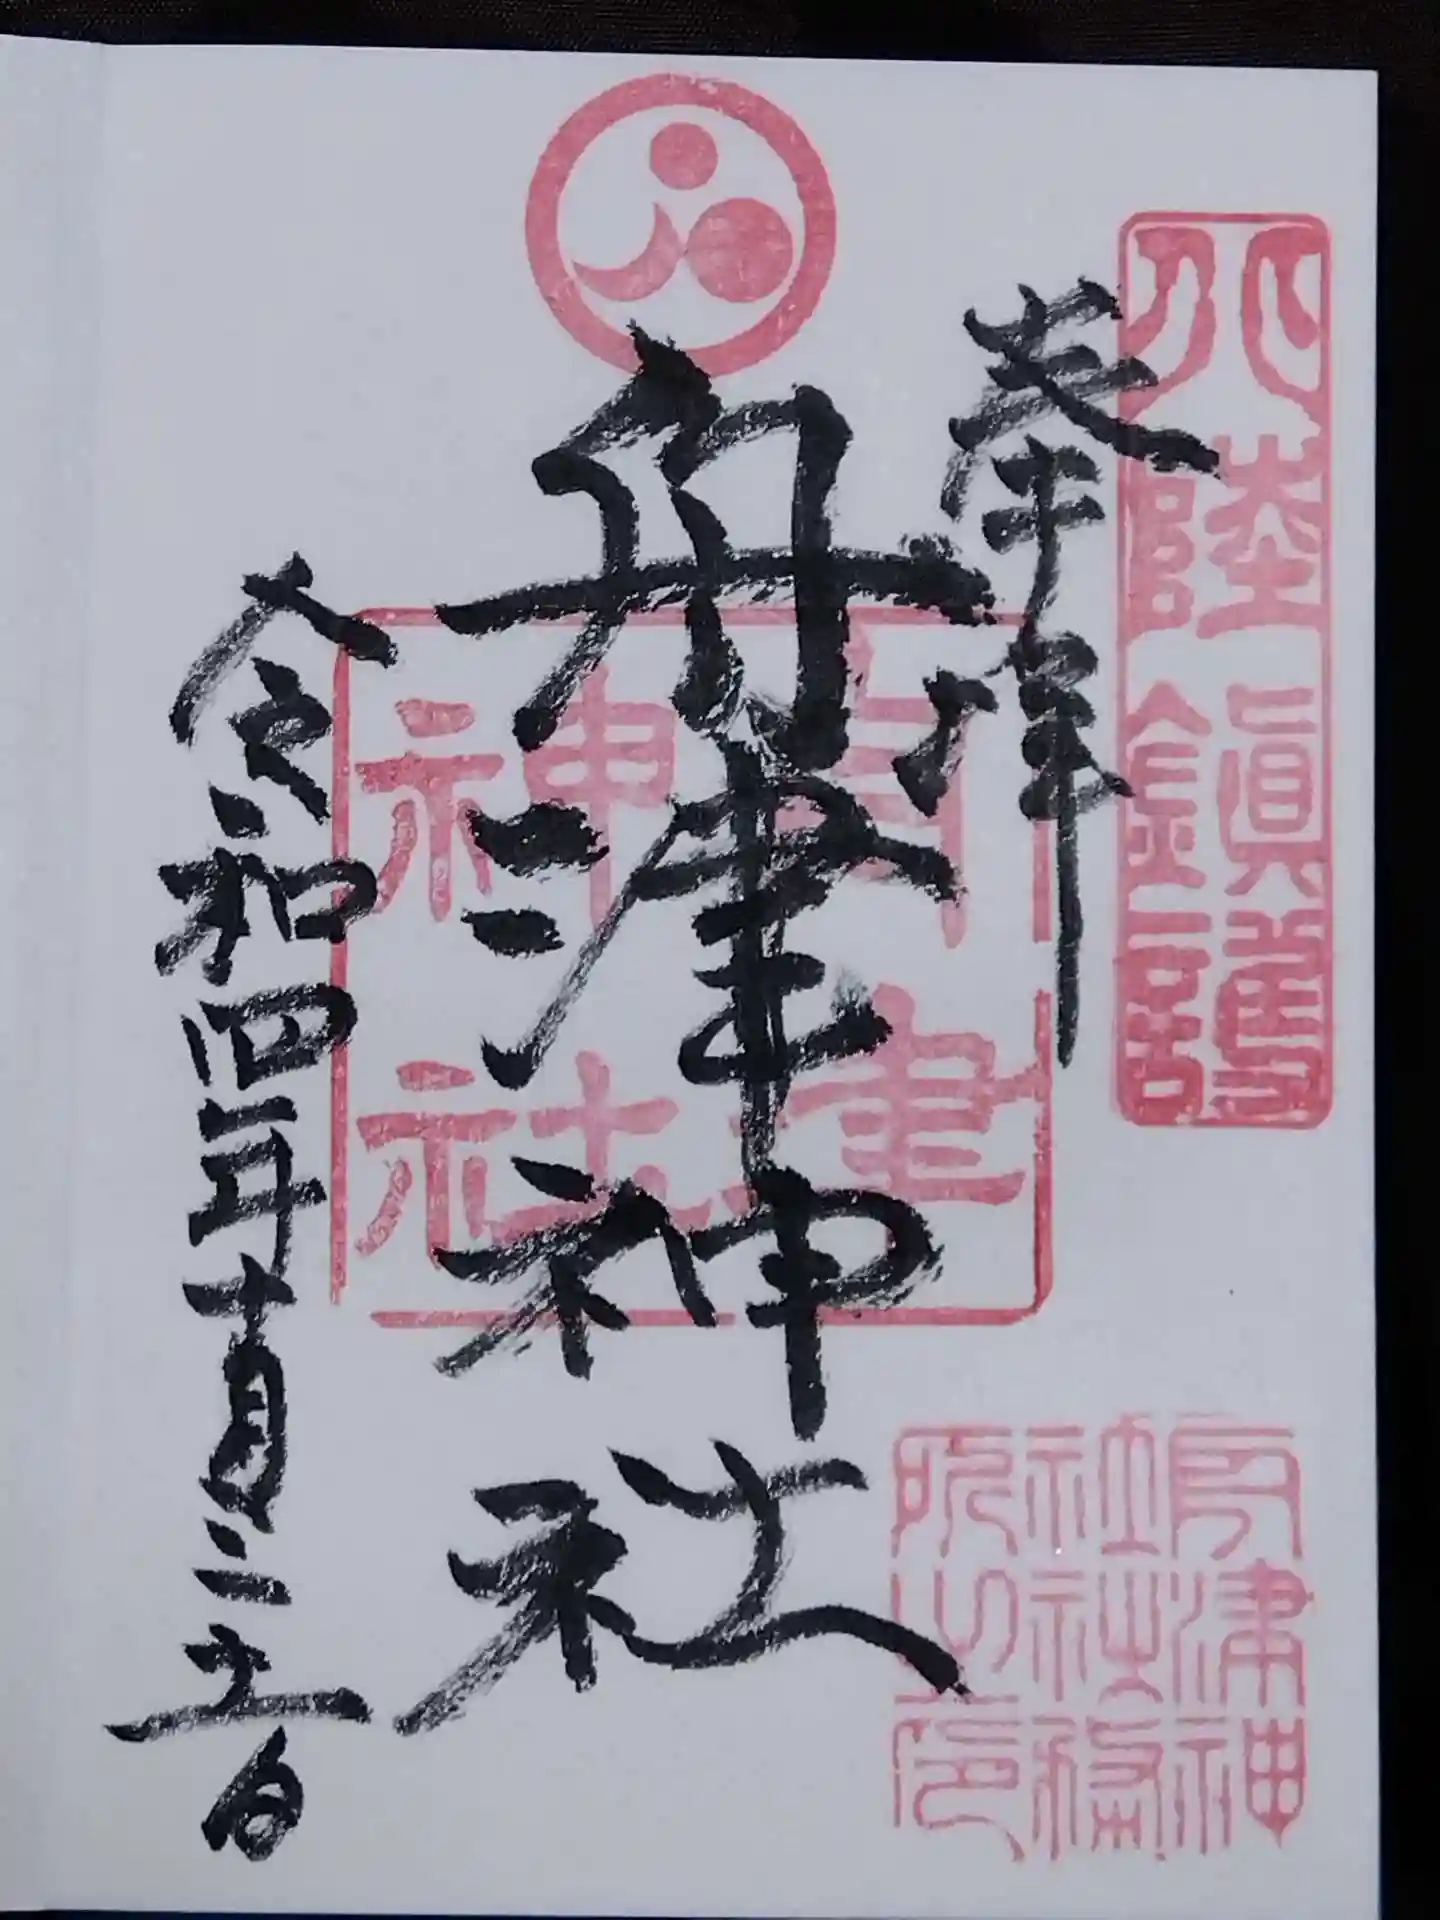 北陸鎭護
奉拝
舟津神社
舟津神社
令和四年十月三十一日
舟津神
社社務
所之印